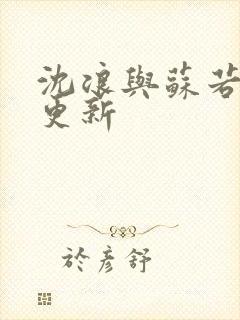 沈浪與蘇若
更新
於彥舒